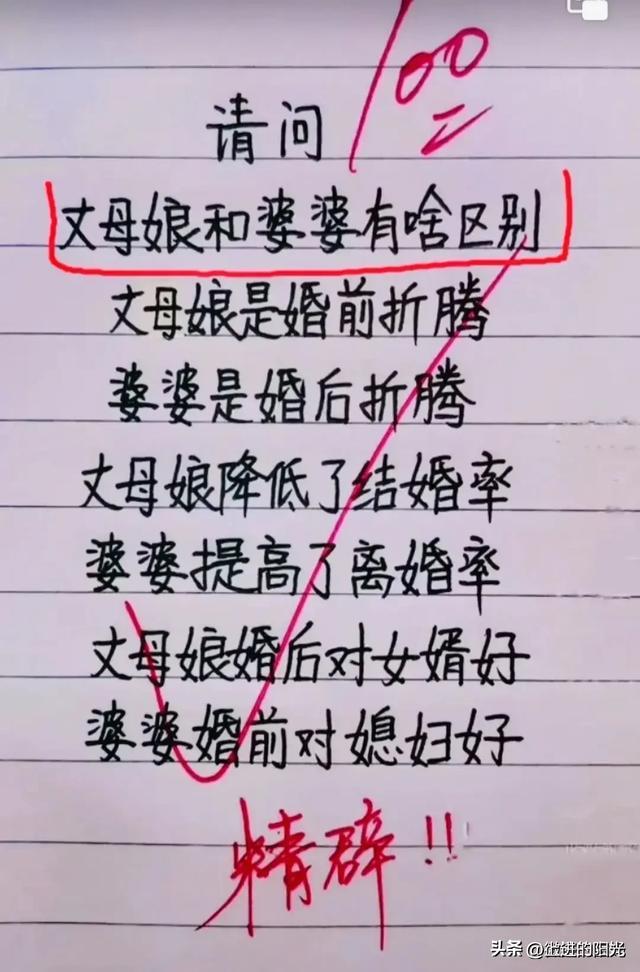 100
请问
丈母娘和婆婆有啥区别
丈母娘是婚前折腾
婆婆是婚后折腾
丈母娘降低了结婚率
婆婆提高了离婚率
丈母娘婚后对女婿好
婆婆婚前对媳妇好
精辟!!
头条 @上进的阳光